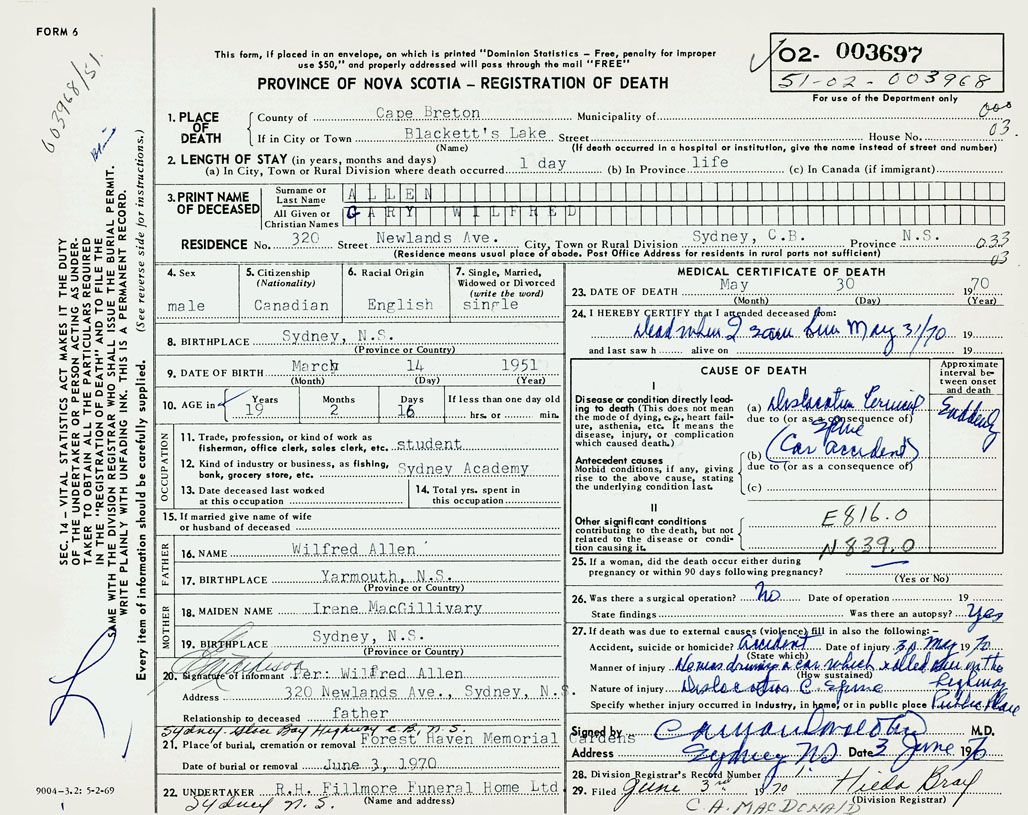 FORM 6
003968/51.
This form, if placed in an envelope, on which is printed "Dominion Statistics – Free, penalty for improper
use $50," and properly addressed will pass through the mail "FREE"
PROVINCE OF NOVA SCOTIA – REGISTRATION OF DEATH
02- 003697
51-02-003968
For use of the Department only
000
03.
1. PLACE OF DEATH
County of Cape Breton Municipality of
If in City or Town Blackett's Lake Street House No.
(Name) (If death occurred in a hospital or institution, give the name instead of street and number)
2. LENGTH OF STAY (in years, months and days)
(a) In City, Town or Rural Division where death occurred 1 day (b) In Province life (c) In Canada (if immigrant)
3. PRINT NAME OF DECEASED
Surname or Last Name ALLEN
All Given or Christian Names GARY WILFRED
RESIDENCE No. 320 Street Newlands Ave. City, Town or Rural Division Sydney, C.B. Province N.S.
(Residence means usual place of abode. Post Office Address for residents in rural parts not sufficient)
033
03
4. Sex
male
5. Citizenship
(Nationality)
Canadian
6. Racial Origin
English
7. Single, Married,
Widowed or Divorced
(write the word)
single
8. BIRTHPLACE Sydney, N.S.
(Province or Country)
9. DATE OF BIRTH March 14 1951
(Month) (Day) (Year)
10. AGE in Years Months Days If less than one day old
19 2 16 hrs. or min.
OCCUPATION
11. Trade, profession, or kind of work as
fisherman, office clerk, sales clerk, etc. student
12. Kind of industry or business, as fishing,
bank, grocery store, etc. Sydney Academy
13. Date deceased last worked
at this occupation
14. Total yrs. spent in
this occupation
15. If married give name of wife
or husband of deceased
FATHER
16. NAME Wilfred Allen
17. BIRTHPLACE Yarmouth, N.S.
(Province or Country)
MOTHER
18. MAIDEN NAME Irene MacGillivary
19. BIRTHPLACE Sydney, N.S.
(Province or Country)
20. Signature of informant Per: Wilfred Allen
Address 320 Newlands Ave., Sydney, N.S.
Relationship to deceased father
Sydney Glace Bay Highway C.B. N.S.
21. Place of burial, cremation or removal Forest Haven Memorial Gardens
Date of burial or removal June 3, 1970
22. UNDERTAKER R.H. Fillmore Funeral Home Ltd
Sydney N.S. (Name and address)
MEDICAL CERTIFICATE OF DEATH
23. DATE OF DEATH May 30 1970
(Month) (Day) (Year)
24. I HEREBY CERTIFY that I attended deceased from:
Dead when I saw him May 31/70 19
and last saw h alive on 19
CAUSE OF DEATH
Approximate interval between onset and death
I
Disease or condition directly leading to death (This does not mean
the mode of dying, e.g., heart failure, asthenia, etc. It means the
disease, injury, or complication
which caused death.)
(a) Dislocation Cervical
due to (or as a consequence of)
Spine
Suddenly
Antecedent causes
Morbid conditions, if any, giving
rise to the above cause, stating
the underlying condition last.
(b) (Car accident)
due to (or as a consequence of)
(c)
II
Other significant conditions
contributing to the death, but not
related to the disease or condition causing it.
E816.0
N839.0
25. If a woman, did the death occur either during
pregnancy or within 90 days following pregnancy?
(Yes or No)
26. Was there a surgical operation? No Date of operation 19
State findings Was there an autopsy? Yes
27. If death was due to external causes (violence) fill in also the following:–
Accident, suicide or homicide? Accident Date of injury 30 May 1970
(State which)
Manner of injury He was driving a car which rolled over on the
(How sustained) highway
Nature of injury Dislocation C. Spine
Specify whether injury occurred in Industry, in home, or in public place Public Place
Signed by M.D.
Address Sydney NS Date 3 June 1970
28. Division Registrar's Record Number
29. Filed June 3rd 1970 Hilda Bray
(Division Registrar)
C.A. MACDONALD
SEC. 14 – VITAL STATISTICS ACT MAKES IT THE DUTY
OF THE UNDERTAKER OR PERSON ACTING AS UNDERTAKER TO OBTAIN ALL THE PARTICULARS REQUIRED
IN THE "REGISTRATION OF DEATH" AND TO FILE THE
SAME WITH THE DIVISION REGISTRAR WHO SHALL ISSUE THE BURIAL PERMIT.
WRITE PLAINLY WITH UNFADING INK. THIS IS A PERMANENT RECORD.
Every item of information should be carefully supplied. (See reverse side for instructions.)
9004-3.2: 5-2-69